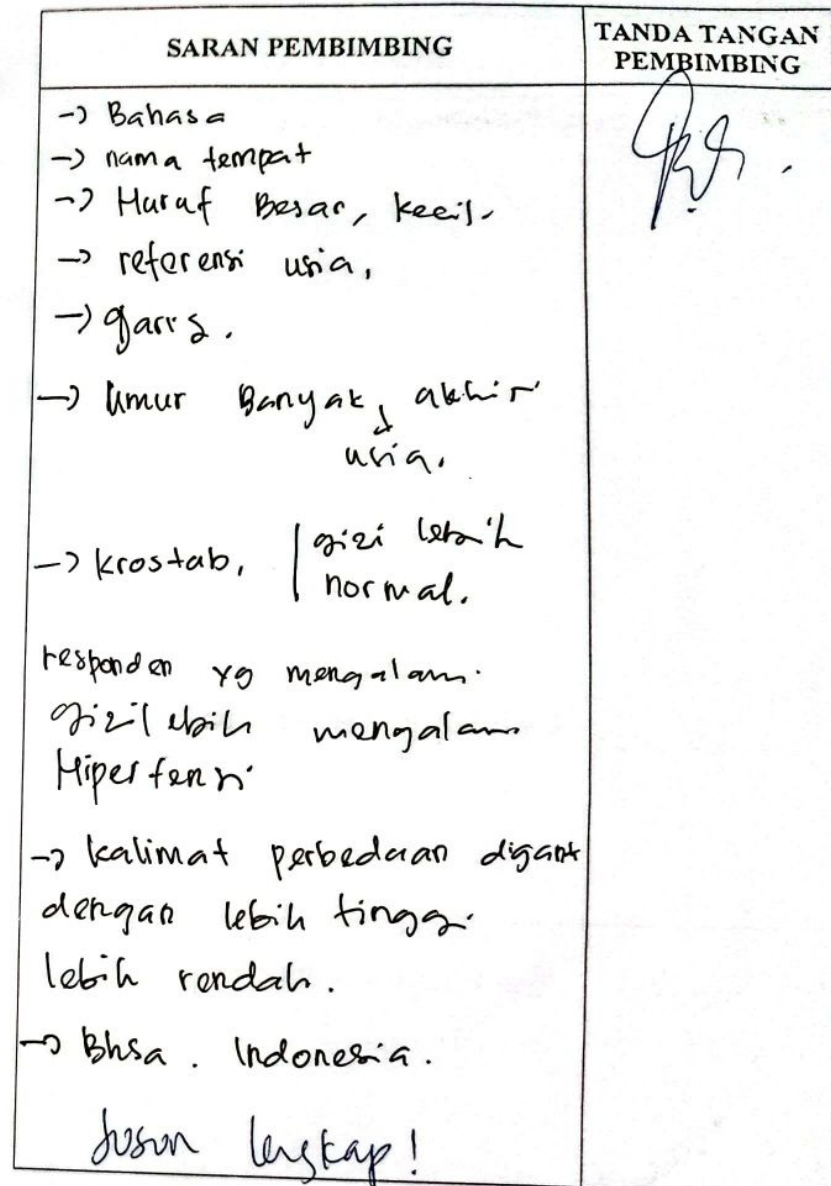 SARAN PEMBIMBING
TANDA TANGAN
PEMBIMBING
-> Bahasa
-> nama tempat
-> Huruf Besar, kecil.
-> referensi usia,
-> garis.
-> Umur Banyak, akhir
usia.
-> krostab, | gizi lebih
normal.
responden yg mengalami
gizi lebih mengalami
Hipertensi
-> kalimat perbedaan digant
dengan lebih tinggi
lebih rendah.
-> Bhsa. Indonesia.
susun lengkap!